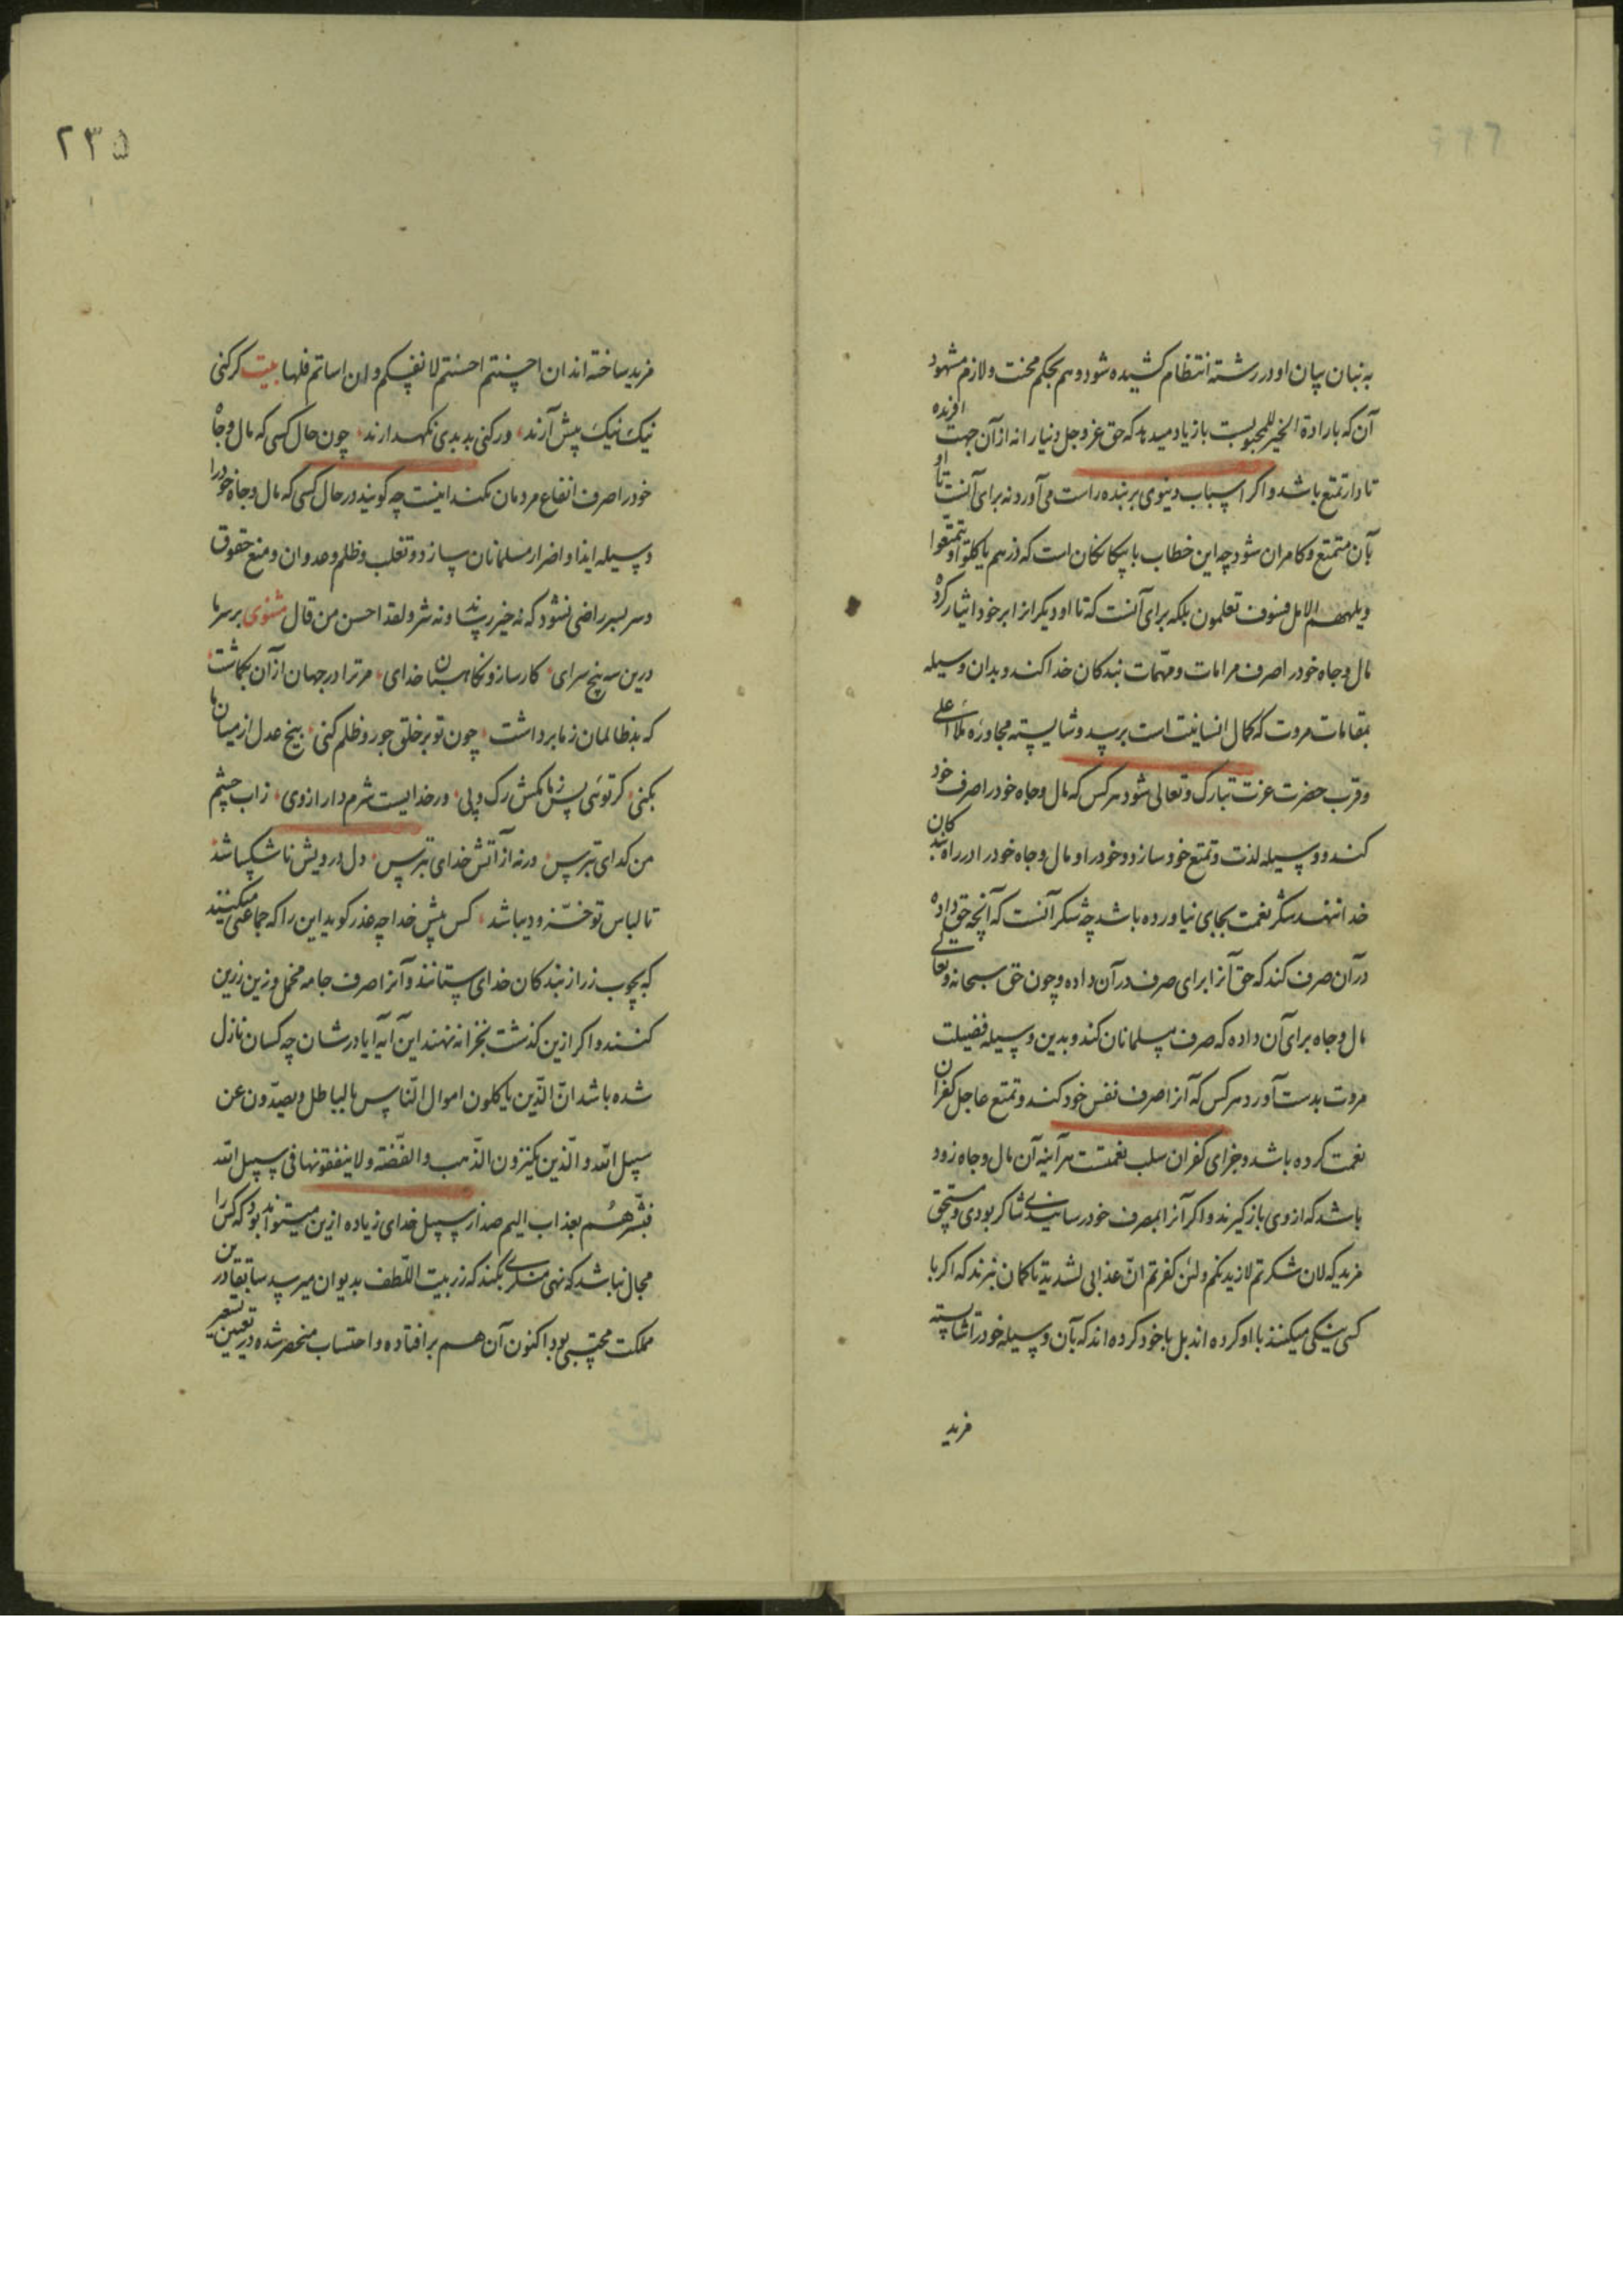 به بنان بیان او در رشته انتظام کشیده شود و هم بحکم محبت و لازم مشهود
آن که بارادة الخیر للمحبوبست باز یاد میدهد که حق عز و جل دنیا را نه از آن جهت آفریده
تا دار تمتع باشد و اکر اسباب دنیوی بر بنده راست می آورد نه برای آنست تا او
بآن متمتع و کامران شود چه این خطاب با بیکانکان است که ذرهم یاکلوا و یتمتعوا
و یلههم الامل فسوف تعلمون بلکه برای آنست که تا او دیکرانرا بر خود ایثار کرده
مال و جاه خود را صرف مرامات و مهمات بندکان خدا کند و بدان وسیله
بمقامات مروت که کمال انسانیت است برسد و شایسته مجاوره ملاء اعلی
و قرب حضرت عزت تبارک و تعالی شود هر کس که مال و جاه خود را صرف خود
کند و وسیله لذت و تمتع خود سازد و خود را و مال و جاه خود را در راه بندکان
خدا ننهد شکر نعمت بجای نیاورده باشد چه شکر آنست که آنچه حق داده
در آن صرف کند که حق آنرا برای صرف در آن داده و چون حق سبحانه و تعالی
مال و جاه برای آن داده که صرف مسلمانان کند و بدین وسیله فضیلت
مروت بدست آورد هر کس که آنرا صرف نفس خود کند و تمتع عاجل کفران
نعمت کرده باشد و جزای کفران سلب نعمتست هر آینه آن مال و جاه زود
باشد که از وی باز کیرند و اکر آنرا بمصرف خود رسانیدی شاکر بودی و مستحق
مزید که لان شکرتم لازیدنکم و لئن کفرتم ان عذابی لشدید تا کمان نبرند که اکر با
کسی نیکی میکنند با او کرده اند بل با خود کرده اند که بآن وسیله خود را شایسته
مزید
۲۳۵
مزید ساخته اند ان احسنتم احسنتم لانفسکم و ان اساتم فلها بیت کر کنی
نیک نیک پیش آرند ورکنی بد بدی نکهدارند چون حال کسی که مال و جاه
خود را صرف انتفاع مردمان نکند اینست چه کویند در حال کسی که مال و جاه خود را
وسیله ایذا و اضرار مسلمانان سازد و تغلب و ظلم و عدوان و منع حقوق
و سر بسر راضی نشود که نه خیر رساند و نه شر و لقد احسن من قال مثنوی بر سر ما
درین سه پنج سرای کارساز و نکاهبان خدای مر ترا در جهان از آن بکماشت
که بد ظالمان ز ما برداشت چون تو بر خلق جور و ظلم کنی بیخ عدل از میان ما
بکنی کر توئی پس ز ما بکش رک و پی ور خدایست شرم دار از وی زاب چشم
من کدای بترس ورنه از آتش خدای بترس دل درویش ناشکیبا شد
تا لباس تو خز و دیبا شد کس پیش خدا چه عذر کوید این را که جماعتی میکنند
که بچوب زر از بندکان خدای بستانند و آنرا صرف جامه مخمل و زین زرین
کنند و اکر ازین کذشت بخزانه نهند این آیه آیا در شان چه کسان نازل
شده باشد ان الذین یاکلون اموال الناس بالباطل و یصدون عن
سبیل الله و الذین یکنزون الذهب و الفضة و لا ینفقونها فی سبیل الله
فبشرهم بعذاب الیم صد از سبیل خدای زیاده ازین میتواند بود که کس را
مجال نباشد که نهی منکری بکند که زر بیت اللطف بدیوان میرسد سابقا درین
مملکت محتسبی بود اکنون آن هم بر افتاده و احتساب منحصر شده در تعیین تسعیر